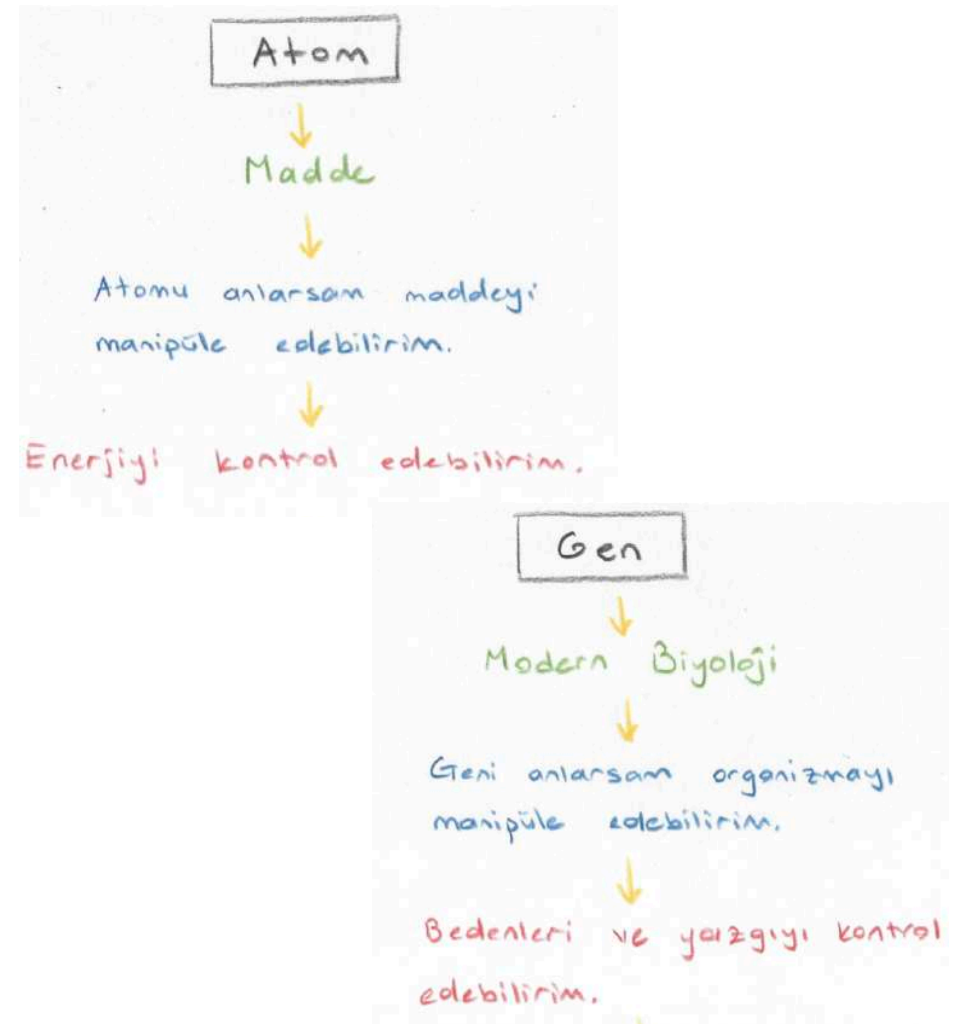 Atom
Madde
Atomu anlarsam maddeyi
manipüle edebilirim.
Enerjiyi kontrol edebilirim.
Gen
Modern Biyoloji
Geni anlarsam organizmayı
manipüle edebilirim.
Bedenleri ve yazgıyı kontrol
edebilirim.